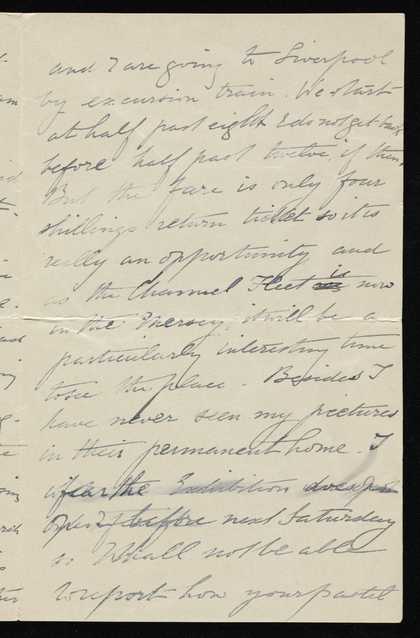 and I are going to Liverpool
by excursion train. We start
at half past eight & do not get back
before half past twelve, if then.
But the fare is only four
shillings return ticket so it is
really an opportunity and
as the Channel Fleet is now
in the Mersey, it will be a
particularly interesting time
to see the place. Besides I
have never seen my pictures
in their permanent home. I
fear the Exhibition does not
open before next Saturday
so I shall not be able
to report how your pastel